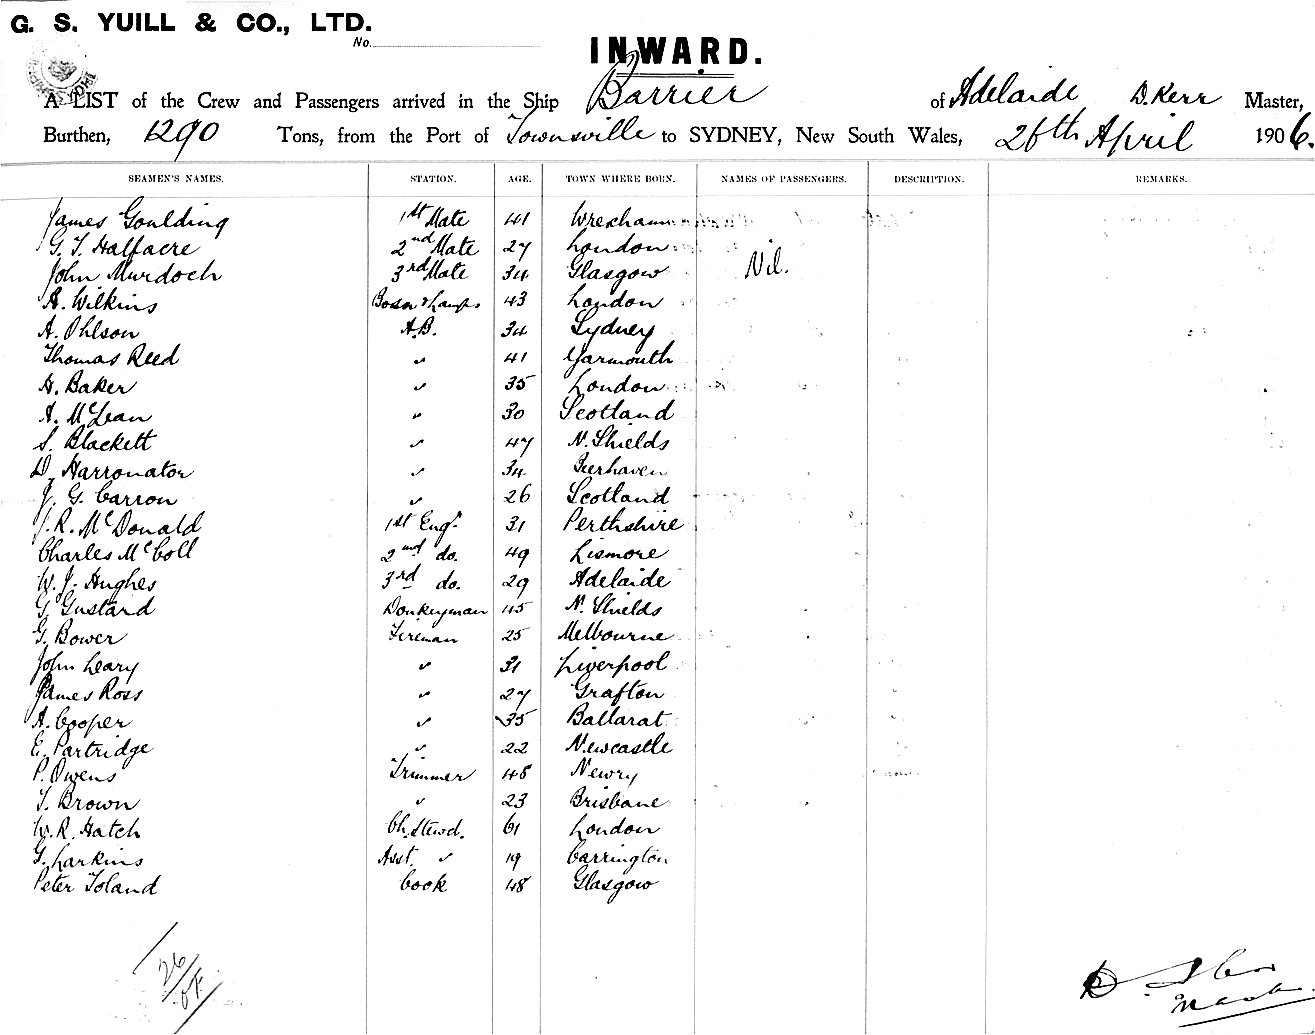 G. S. YUILL & CO., LTD.
No.
INWARD.
A LIST of the Crew and Passengers arrived in the Ship Barrier of Adelaide D. Kerr Master,
Burthen, 1290 Tons, from the Port of Townsville to SYDNEY, New South Wales, 26th April 1906.
SEAMEN'S NAMES. STATION. AGE. TOWN WHERE BORN. NAMES OF PASSENGERS. DESCRIPTION. REMARKS.
James Goulding 1st Mate 41 Wrexham
G. T. Halfacre 2nd Mate 27 London
John Murdoch 3rd Mate 34 Glasgow Nil.
A. Wilkins Bosn & Lamps 43 London
A. Ohlson A.B. 34 Sydney
Thomas Reed " 41 Yarmouth
H. Baker " 35 London
A. McLean " 30 Scotland
S. Blackett " 47 N. Shields
D. Harronator " 34
J. G. Carron " 26 Scotland
J. R. McDonald 1st Engr. 31 Perthshire
Charles McColl 2nd do. 49 Lismore
W. J. Hughes 3rd do. 29 Adelaide
G. Gustard Donkeyman 45 N. Shields
G. Bower Fireman 25 Melbourne
John Leary " 31 Liverpool
James Ross " 27 Grafton
A. Cooper " 35 Ballarat
E. Partridge " 22 Newcastle
P. Owens Trimmer 48 Newry
T. Brown " 23 Brisbane
W. R. Hatch Ch. Stewd. 61 London
G. Larkins Asst. " 19 Carrington
Peter Toland Cook 48 Glasgow
26